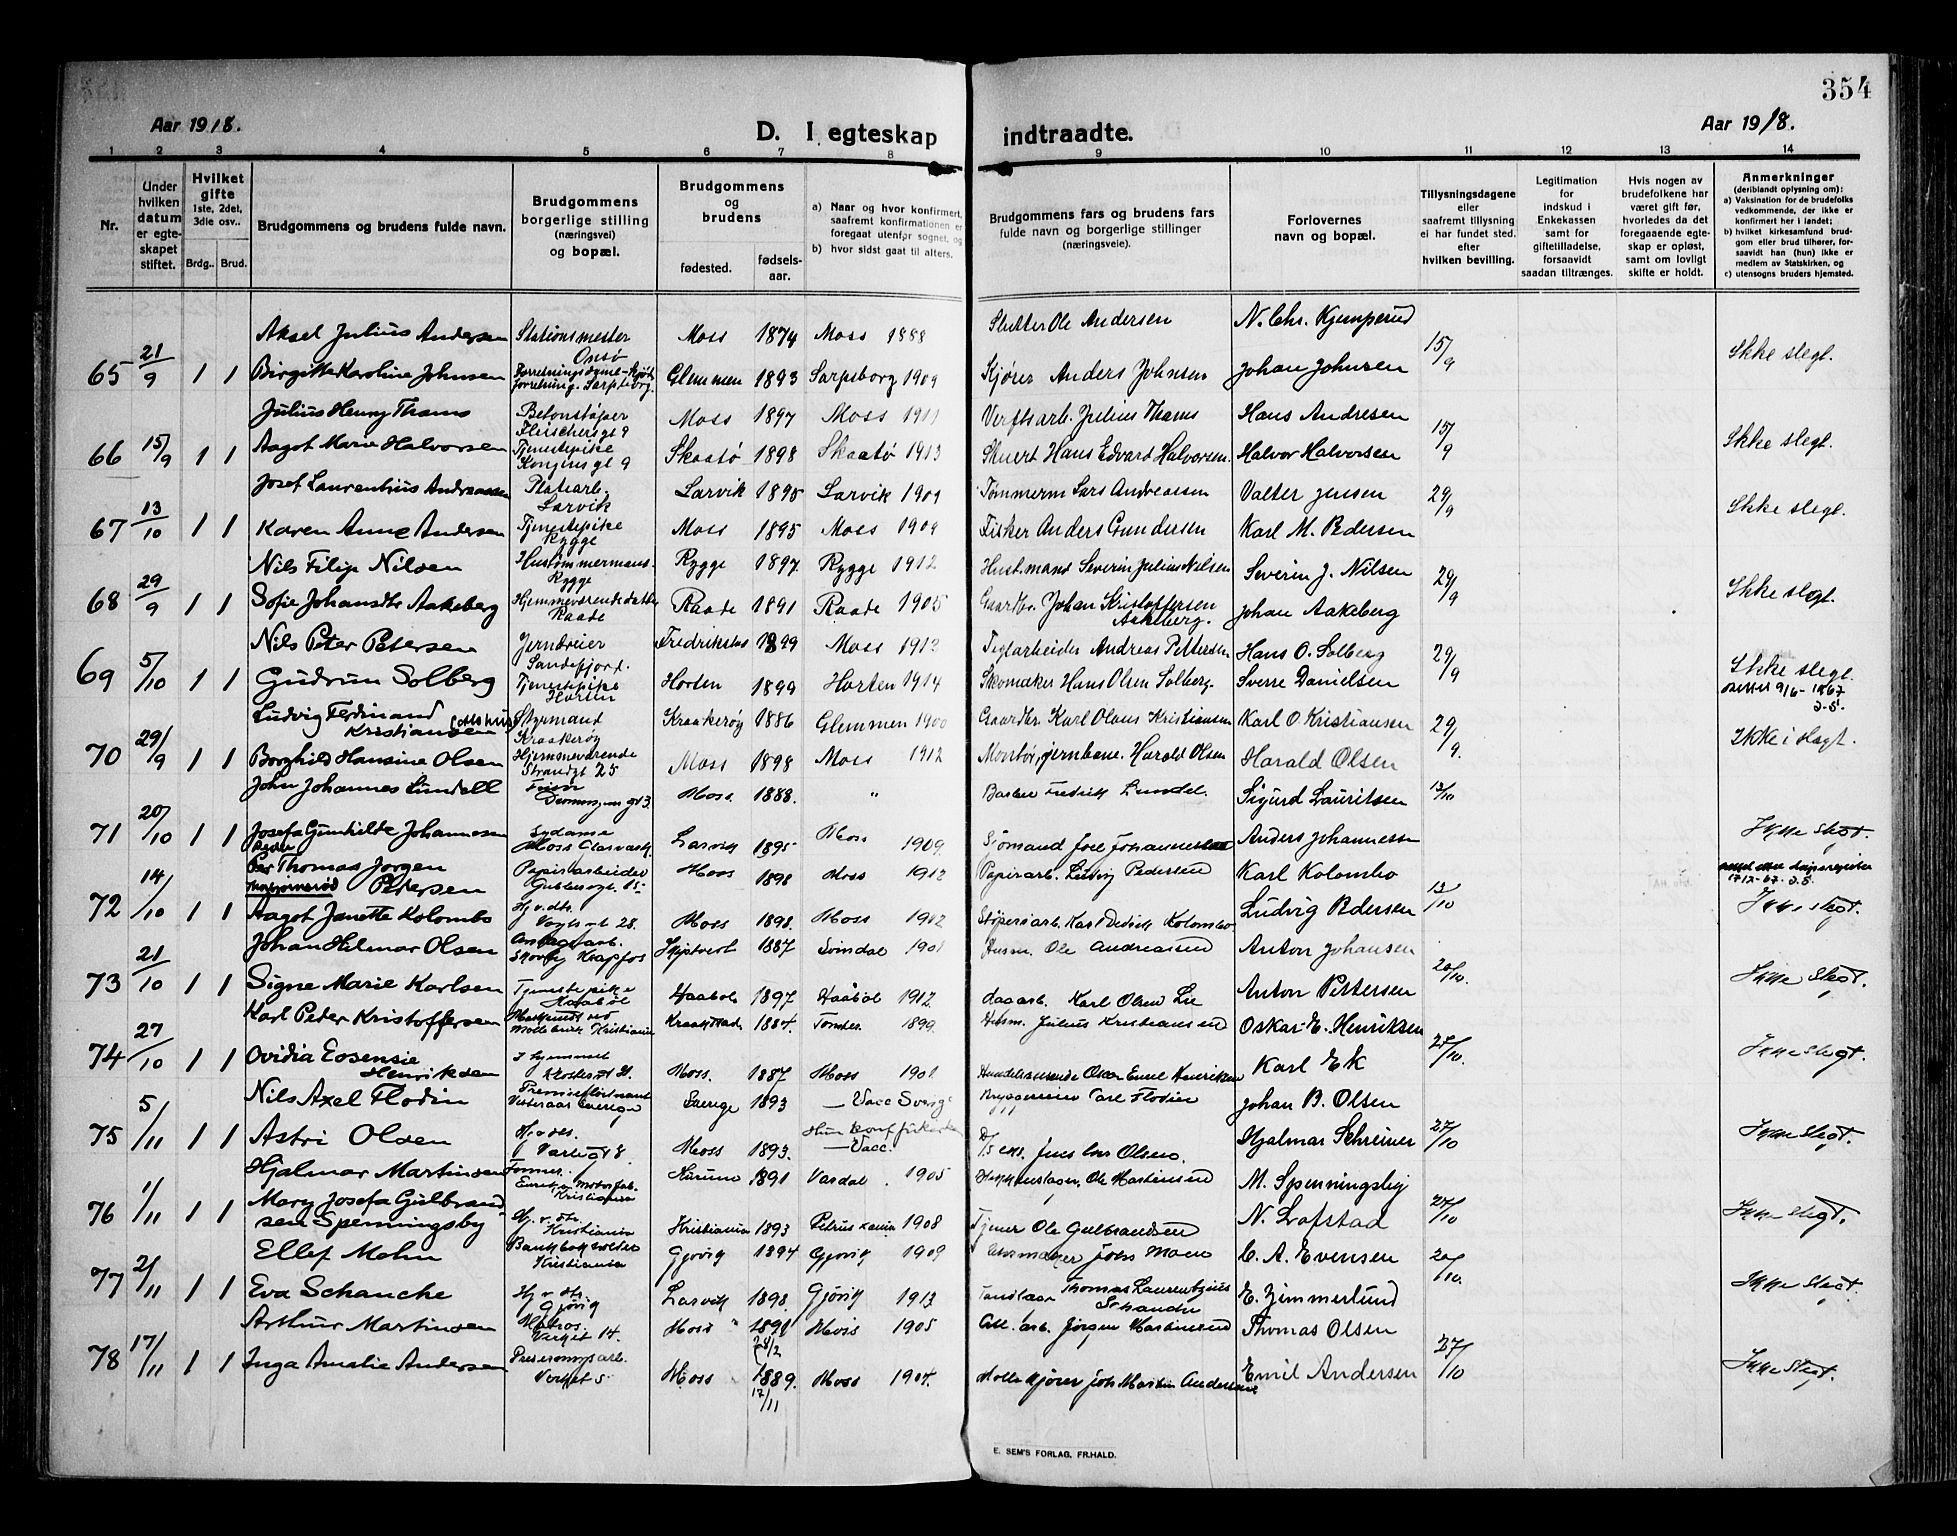 354
Aar 1918.
D. I egteskap indtraadte.
Aar 1918.
1 2 3 4 5 6 7 8 9 10 11 12 13 14
Nr.
Under hvilken datum er egteskapet stiftet.
Hvilket gifte 1ste, 2det, 3die osv..
Brdg.. Brud.
Brudgommens og brudens fulde navn.
Brudgommens borgerlige stilling (næringsvei) og bopæl.
Brudgommens og brudens
fødested. fødsels-aar.
a) Naar og hvor konfirmert, saafremt konfirmationen er foregaat utenfor sognet, og
b) hvor sidst gaat til alters.
Brudgommens fars og brudens fars fulde navn og borgerlige stillinger (næringsveie).
Forlovernes navn og bopæl.
Tillysningsdagene eller saafremt tillysning ei har fundet sted, efter hvilken bevilling.
Legitimation for indskud i Enkekassen samt for giftetilladelse, forsaavidt saadan tiltrænges.
Hvis nogen av brudefolkene har været gift før, hvorledes da det foregaaende egteskap er opløst, samt om lovligt skifte er holdt.
Anmerkninger (deriblandt oplysning om): a) Vaksination for de brudefolks vedkommende, der ikke er konfirmert her i landet; b) hvilket kirkesamfund brudgom eller brud tilhører, forsaavidt han (hun) ikke er medlem av Statskirken, og c) utensogns bruders hjemsted.
Aksel Julius Andersen Stationsmester Onsø Moss 1874 Moss 1888 Slutter Ole Andersen N. Chr. Kjemperud
65 21/9 1 1 Birgitte Karoline Johnsen Sarpsborg Glemmen 1893 Sarpsborg 1909 Kjører Anders Johnsen Johan Johnsen 15/9 Ikke slegt.
Julius Henry Thams Betonstøper Fleischersgt 9 Moss 1897 Moss 1911 Verftsarb. Julius Thams Hans Andresen
66 15/9 1 1 Aagot Marie Halvorsen Tjenestepike Kongensgt 9 Skaatø 1898 Skaatø 1913 Skuert Hans Edvard Halvorsen. Halvor Halvorsen 15/9 Ikke slegt.
Josef Laurentius Andreassen Platearb. Larvik Larvik 1895 Larvik 1909 Tømmerm Lars Andreassen Valter Jensen
67 13/10 1 1 Karen Anne Andersen Tjenestepike Rygge Moss 1895 Moss 1909 Fisker Anders Gundersen Karl M. Pedersen 29/9 Ikke slegt.
Nils Filip Nilsen Hustømmermand Rygge Rygge 1897 Rygge 1912 Husmand Severin Julius Nilsen Severin J. Nilsen
68 29/9 1 1 Sofie Johansdtr Aakeberg Hjemmeværende datter Raade Raade 1891 Raade 1905 Gaardbr. Johan Kristoffersen Aakeberg. Johan Aakeberg 29/9 Ikke slegt.
Nils Peter Petersen Jerndreier Sandefjord. Fredrikstad 1899 Moss 1913 Teglarbeider Andreas Pettersen Hans O. Solberg
69 5/10 1 1 Gudrun Solberg Tjenestepike Horten Horten 1899 Horten 1914 Skomaker Hans Olsen Solberg. Sverre Danielsen 29/9 Ikke slegt.
Ludvig Ferdinand Kristiansen Styrmand Kraakerøy Kraakerøy 1886 Glemmen 1900 Gaardbr. Karl Olaus Kristiansen Karl O. Kristiansen
70 29/9 1 1 Borghild Hansine Olsen Hjemmeværende Strandgt 25 Moss 1898 Moss 1912 Harald Olsen Harald Olsen 29/9. Ikke i slegt.
John Johannes Lundell Frisør Moss. 1888. " Barber Fredrik Lundel. Sigurd Lauritsen 13/10
71 20/10 1 1 Josefa Gunhilde Johannesen Sydame Moss Glasværk. Larvik 1895 Moss 1909. Sømand Joel Johannessen Anders Johannessen Ikke slegt.
Peder Thomas Jørgen Petersen Papirarbeider Moss 1898 Moss 1912 Papirarb. Ludvig Pedersen Karl Kolombo
72 14/10 1 1 Aagot Janette Kolombo Hj. v. dtr. Vogtsgt 28. Moss 1898 Moss 1912 Støperiarb. Karl Kolombo Ludvig Pedersen 13/10 Ikke slegt.
Johan Hilmar Olsen Anlægsarb. Krapfos 1887 Svindal 1901 Husm. Ole Andreassen Anton Johansen
73 21/10 1 1 Signe Marie Karlsen Tjenestepike Haabøl Haabøl 1897 Haabøl 1912 Dagarb. Karl Olsen Lie Anton Pettersen 20/10. Ikke slegt.
Karl Peder Kristoffersen Kristiania Kraakstad 1884. 1899 Husm. Julius Kristiansen Oskar E. Henriksen
74 27/10 1 1 Ovidia Eosensie Henriksen Hjemmet Moss. 1887 Moss 1901 Handelsreisende Oskar Emil Henriksen Karl Ek 27/10. Ikke slegt.
Nils Axel Flodin Vesteraas Sverige Sverige 1893 — Vacc Sverig Carl Flodin Johan B. Olsen
75 5/11 1 1 Astri Olsen Hj. v. dtr. Varlegt 8. Moss 1893. — Vacc. Jens Olsen. Hjalmar Schreiner 27/10 Ikke slegt.
Hjalmar Martinsen Former. Kristiania 1891 Vardal 1905 Ole Martinsen M. Spenningsby
76 1/11 1 1 Mary Josefa Gulbrandsen Spenningsby Hj. v. dtr. Kristiania Kristiania 1893 Petrus Kania 1908 Tjener Ole Gulbrandsen N. Lofstad 27/10 Ikke slegt.
Ellef Mohn Bankbokholder Kristiania Gjøvig 1894 Gjøvig 1909 Urmaker Johs Moen C. A. Evensen
77 2/11 1 1 Eva Schanche Hj v dtr. Gjøvig Larvik 1898. Gjøvik 1913 Tandlæge Thomas Laurentzius Schanche E. Zimmerlund 20/10. Ikke slegt.
Arthur Martinsen Matros. Verket 14. Moss 1891 28/2 Moss 1905 Cell. arb. Jørgen Martinsen Thomas Olsen
78 17/11 1 1 Inga Amalie Andersen Preserveringsarb. Verket 5 Moss 1889. 17/11 Moss 1904. Møllekjører Johs Martin Andersen Emil Andersen 27/10 Ikke slegt.
E. SEM'S FORLAG, FR.HALD.